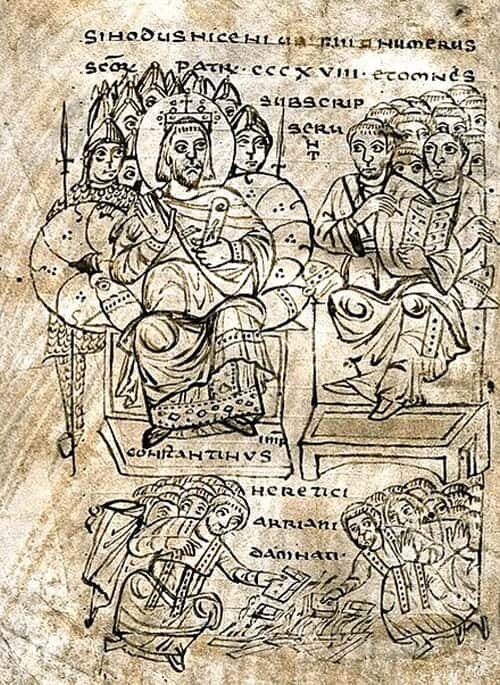 SIHODUS NICENI NUMERUS
SCOR̄ PATRV · CCCXVIII · ET OMNES
SUBSCRIP
SERU
NT
IMP
CONSTANTINUS
HERETICI
ARRIANI
DAMNATI·